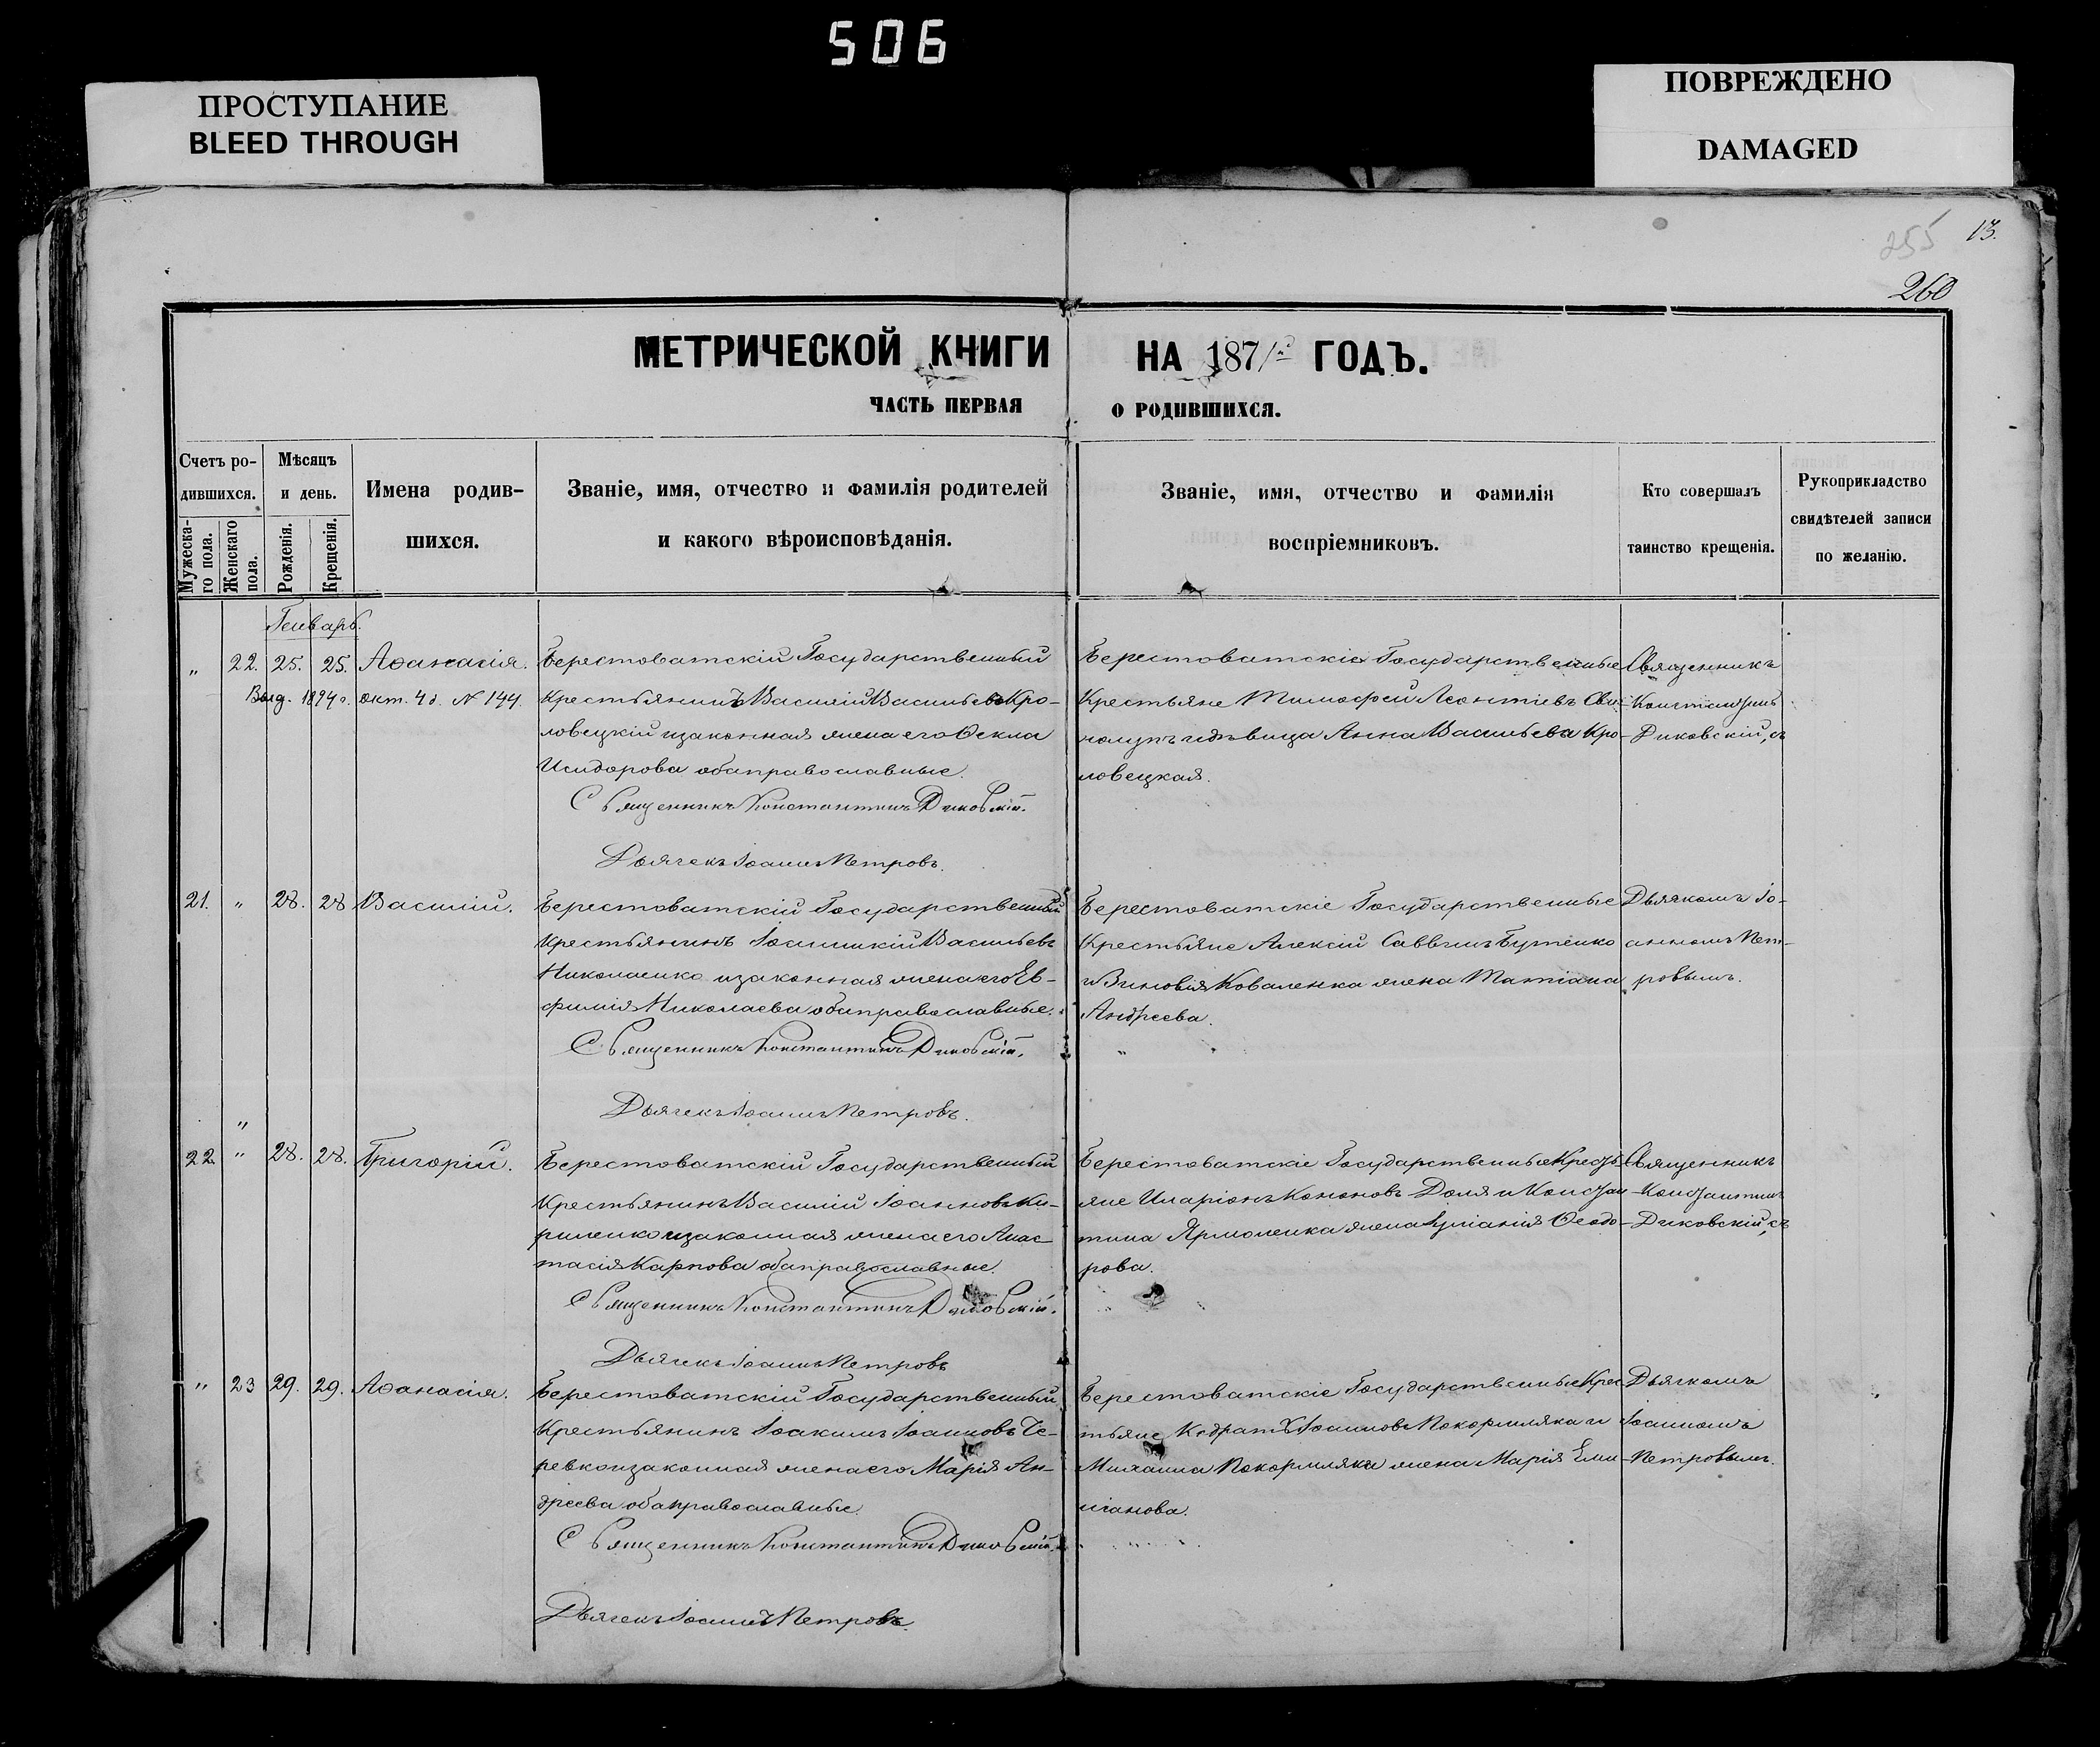 506
ПРОСТУПАНИЕ
BLEED THROUGH
ПОВРЕЖДЕНО
DAMAGED
255
13.
260
МЕТРИЧЕСКОЙ КНИГИ НА 1871й ГОДЪ.
ЧАСТЬ ПЕРВАЯ О РОДИВШИХСЯ.
Счетъ ро-
дившихся.
Мужеска-
го пола.
Женскаго
пола.
Мѣсяцъ
и день.
Рожденія.
Крещенія.
Имена родив-
шихся.
Званіе, имя, отчество и фамилія родителей
и какого вѣроисповѣданія.
Званіе, имя, отчество и фамилія
воспріемниковъ.
Кто совершалъ
таинство крещенія.
Рукоприкладство
свидѣтелей записи
по желанію.
Генварь.
„ 22. 25. 25. Аѳанасія.
Выд. 1894 г. окт. 4 д. № 144.
Берестоватскій Государственный
Крестьянинъ Василій Васильевъ Кро-
ловецкій изаконная жена его Ѳекла
Исидорова оба православные.
Священникъ Константинъ Диковскій.
Дьячекъ Іоаннъ Петровъ.
Берестоватскіе Государственные
Крестьяне Тимоѳей Леонтіевъ
и дѣвица Анна Васильева Кро-
ловецкая.
Священникъ
Константинъ
Диковскій, съ
21. „ 28. 28 Василій.
Берестоватскій Государственный
Крестьянинъ Іоанникій Васильевъ
Николаенко изаконная жена его Ев-
фимія Николаева оба православные.
Священникъ Константинъ Диковскій.
Дьячекъ Іоаннъ Петровъ.
Берестоватскіе Государственные
Крестьяне Алексій Саввинъ Бутенко
и Зиновія Коваленка жена Татіана
Андреева.
Дьячкомъ Іо-
анномъ Пет-
ровымъ.
22 „ 28. 28. Григорій.
Берестоватскій Государственный
Крестьянинъ Василій Іоанновъ Ки-
риленко изаконная жена его Анас-
тасія Карпова оба православные.
Священникъ Константинъ Диковскій.
Дьячекъ Іоаннъ Петровъ
Берестоватскіе Государственные Кресть-
яне Иларіонъ Кононовъ Доля и Констан-
тина Ярмоленка жена Іуліанія Ѳеодо-
рова.
Священникъ
Константинъ
Диковскій, съ
„ 23 29. 29. Аѳанасія.
Берестоватскій Государственный
Крестьянинъ Іоакимъ Іоанновъ Че-
ревко изаконная жена его Марія Ан-
дреева оба православные.
Священникъ Константинъ Диковскій.
Дьячекъ Іоаннъ Петровъ.
Берестоватскіе Государственные Крес-
тьяне Кодратъ Іоанновъ Покормляка и
Михаила Покормляки жена Марія Еми-
ліанова.
Дьячкомъ
Іоанномъ
Петровымъ.